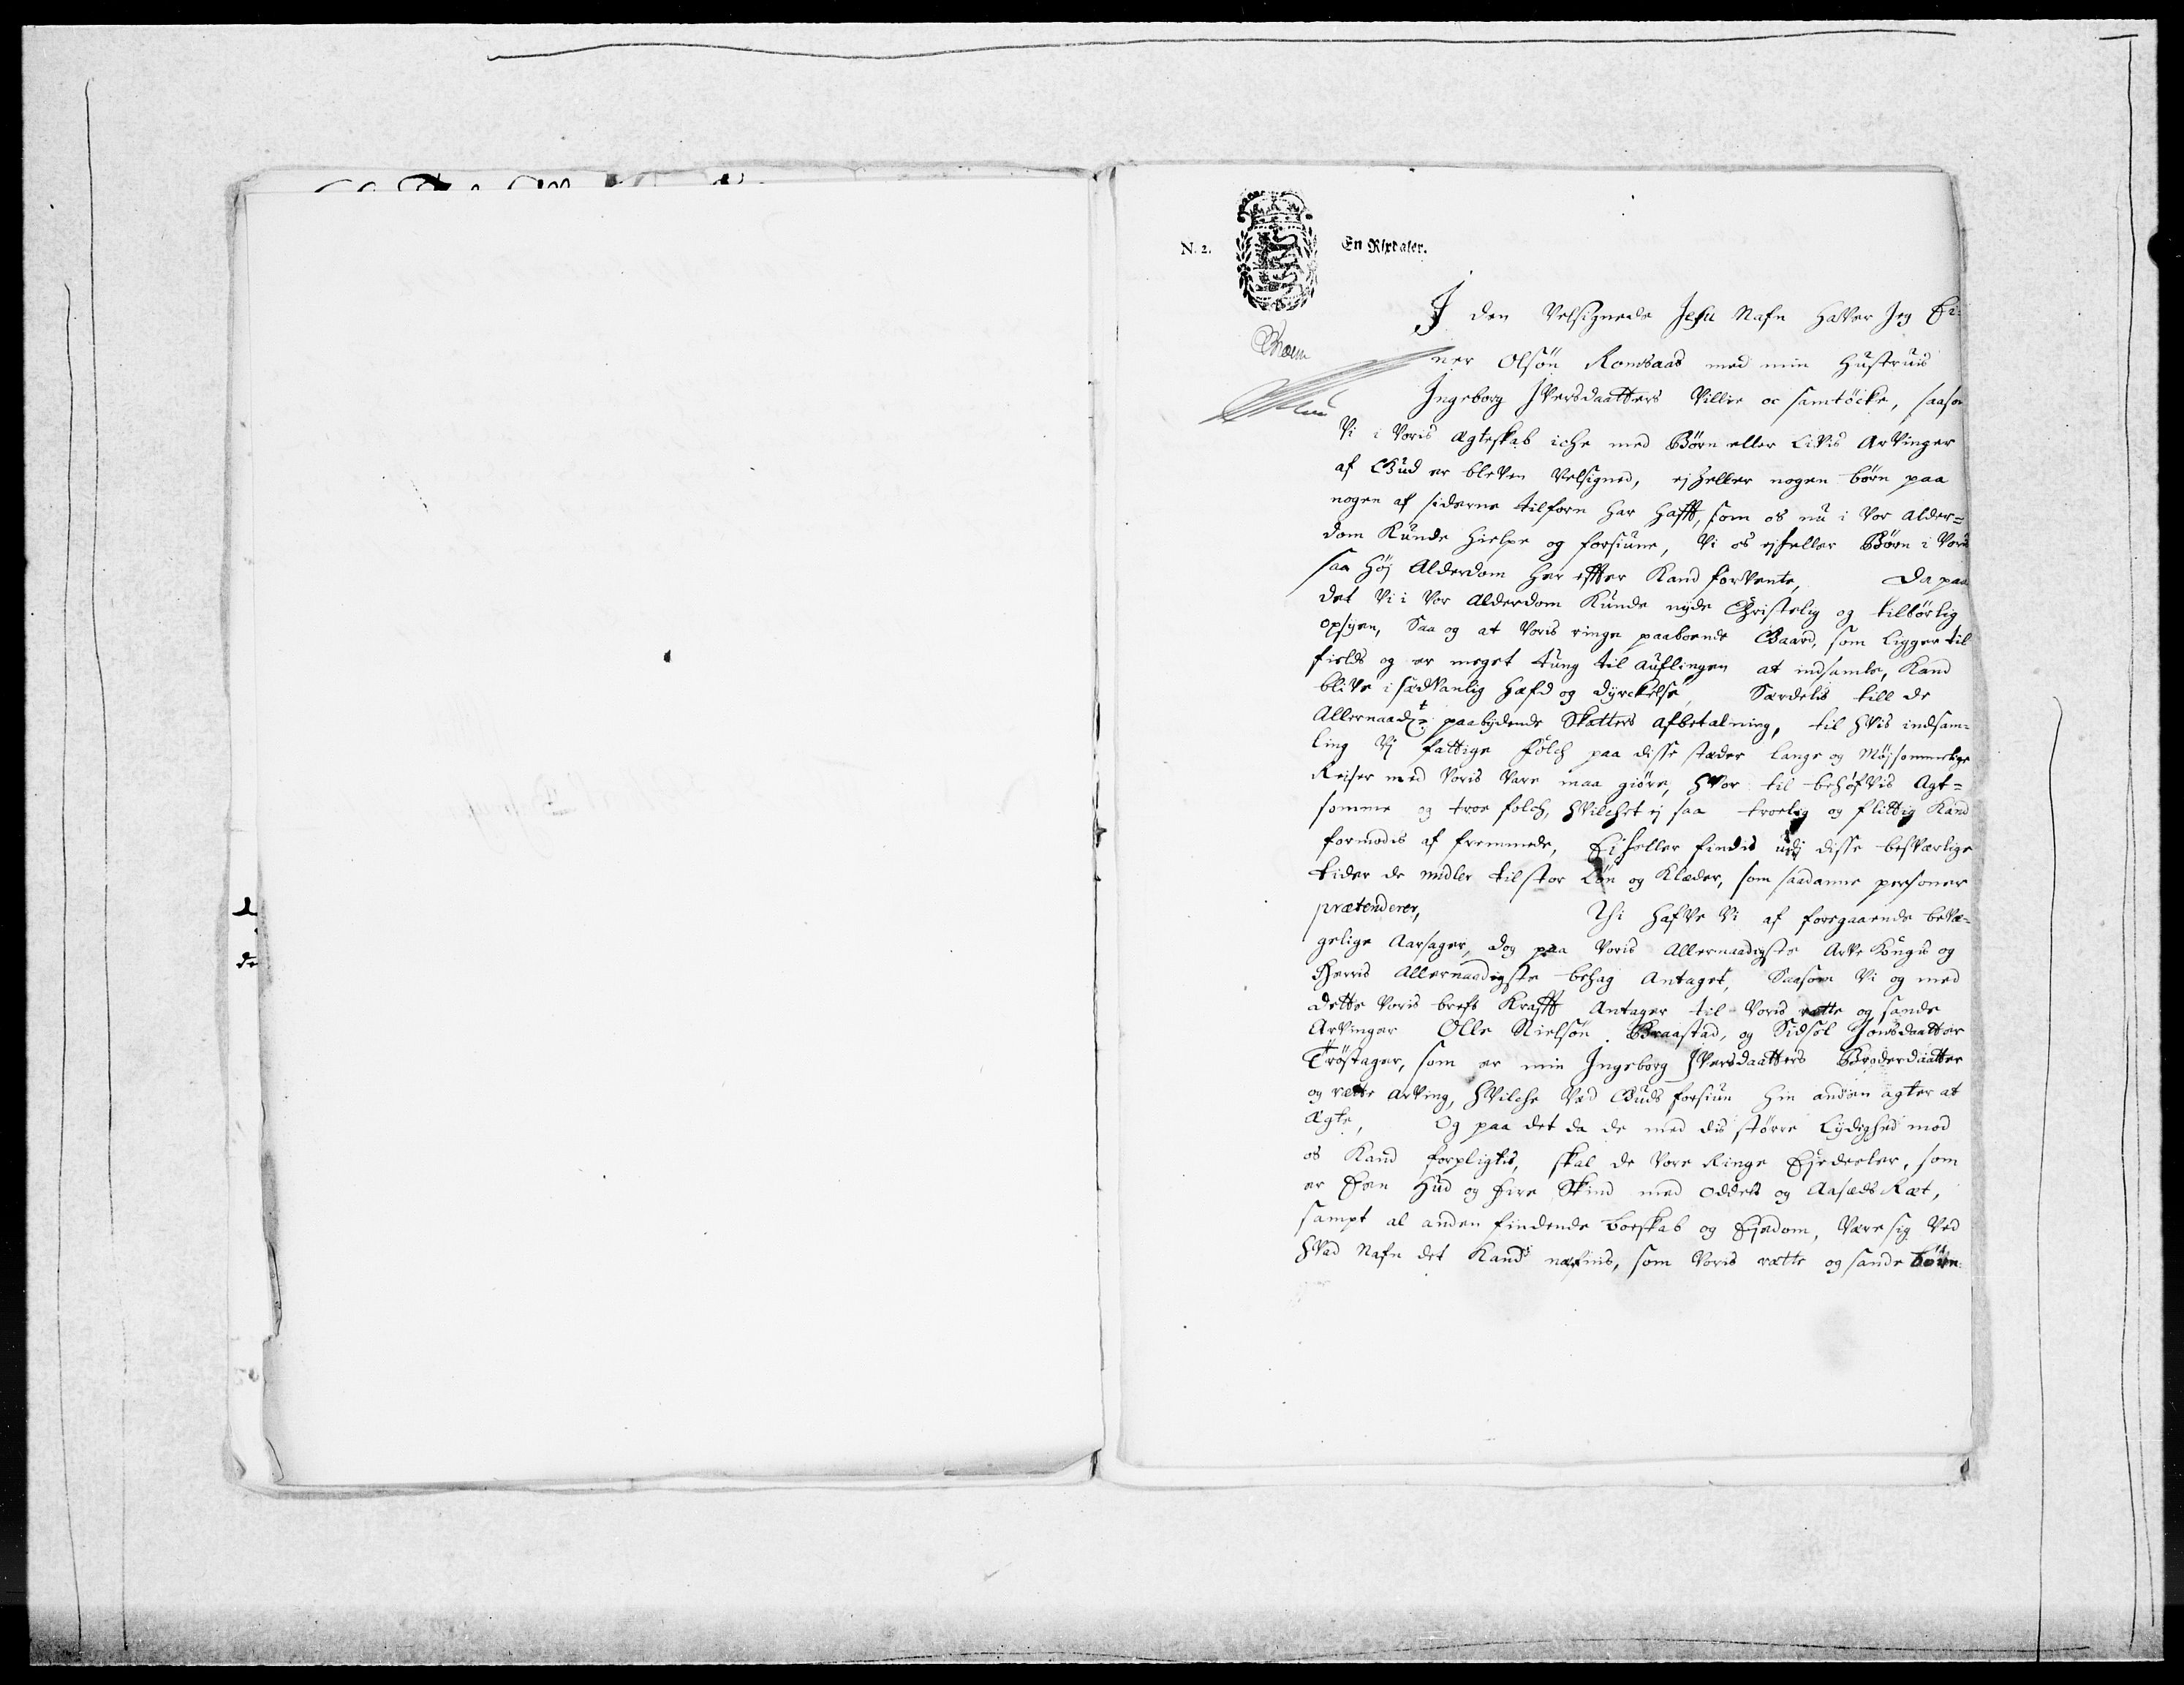 N. 2.
En Rixdaler.
J den Velsignede Jesu Nafn haver Jeg Ei-
ner Olsøn Romsaas med min Hustruis
Ingeborg Iversdaatters Villie oc samtøcke, saasom
Vi i Voris Ægteskab iche med Børn eller Livis Arvinger
af Gud er bleven Velsigned, ej heller nogen børn paa
nogen af siderne tilforn har hafft, som os nu i Vor alder=
dom Kunde hielpe og forsiune, Vi os ejheller Børn i Voris
saa høj Alderdom her effter Kand forvente, Da paa
det Vi i Vor Alderdom Kunde nyde Christelig og tilbørlig
opsyen, Saa og at Voris ringe paaboende Gaard, som ligger til
fields og er meget tung til auflingen at indsamle, Kand
blive i sædvanlig hæfd og dyrckelse, Særdelis till de
Allernaadt: paabydende Skatters afbetalning, til hvis indsam=
ling Vj fattige folch paa disse stæder lange og Møjsommelige
Reiser med Voris Vare maa giøre, hvor til behøfvis Agt=
somme og troe folch, hvilchet ej saa troelig og flittig Kand
formodes af fremmede, Ei heller findis udj disse besværlige
tider de midler til stor Løn og Klæder, som saadanne personer
prætenderer, Thi hafve Vi af foregaaende bevæ=
gelige Aarsager, dog paa Voris Allernaadigste Arve Kongis og
Herris Allernaadigste behag Antaget, Saasom Vi og med
dette Voris brefs Krafft Antager til Voris rette og sande
Arvinger Olle Nielsøn Braastad, og Sidsel Jonsdaatter
Trøstager, som er min Ingeborg Iversdaatters Broderdaatter
og rette arving, hvilche Ved Guds forsiun hin anden agter at
Ægte, Og paa det da de med dis større Lydighed mod
os Kand forpligtis, skal de Vore Ringe Ejedeeler, som
er Een Hud og fire Skind med oddels og Aasædes Ræt,
sampt al anden findende boeskab og Ejedom, Være sig Ved
hvad Nafn det Kand næfnis, som Voris rætte og sande børn